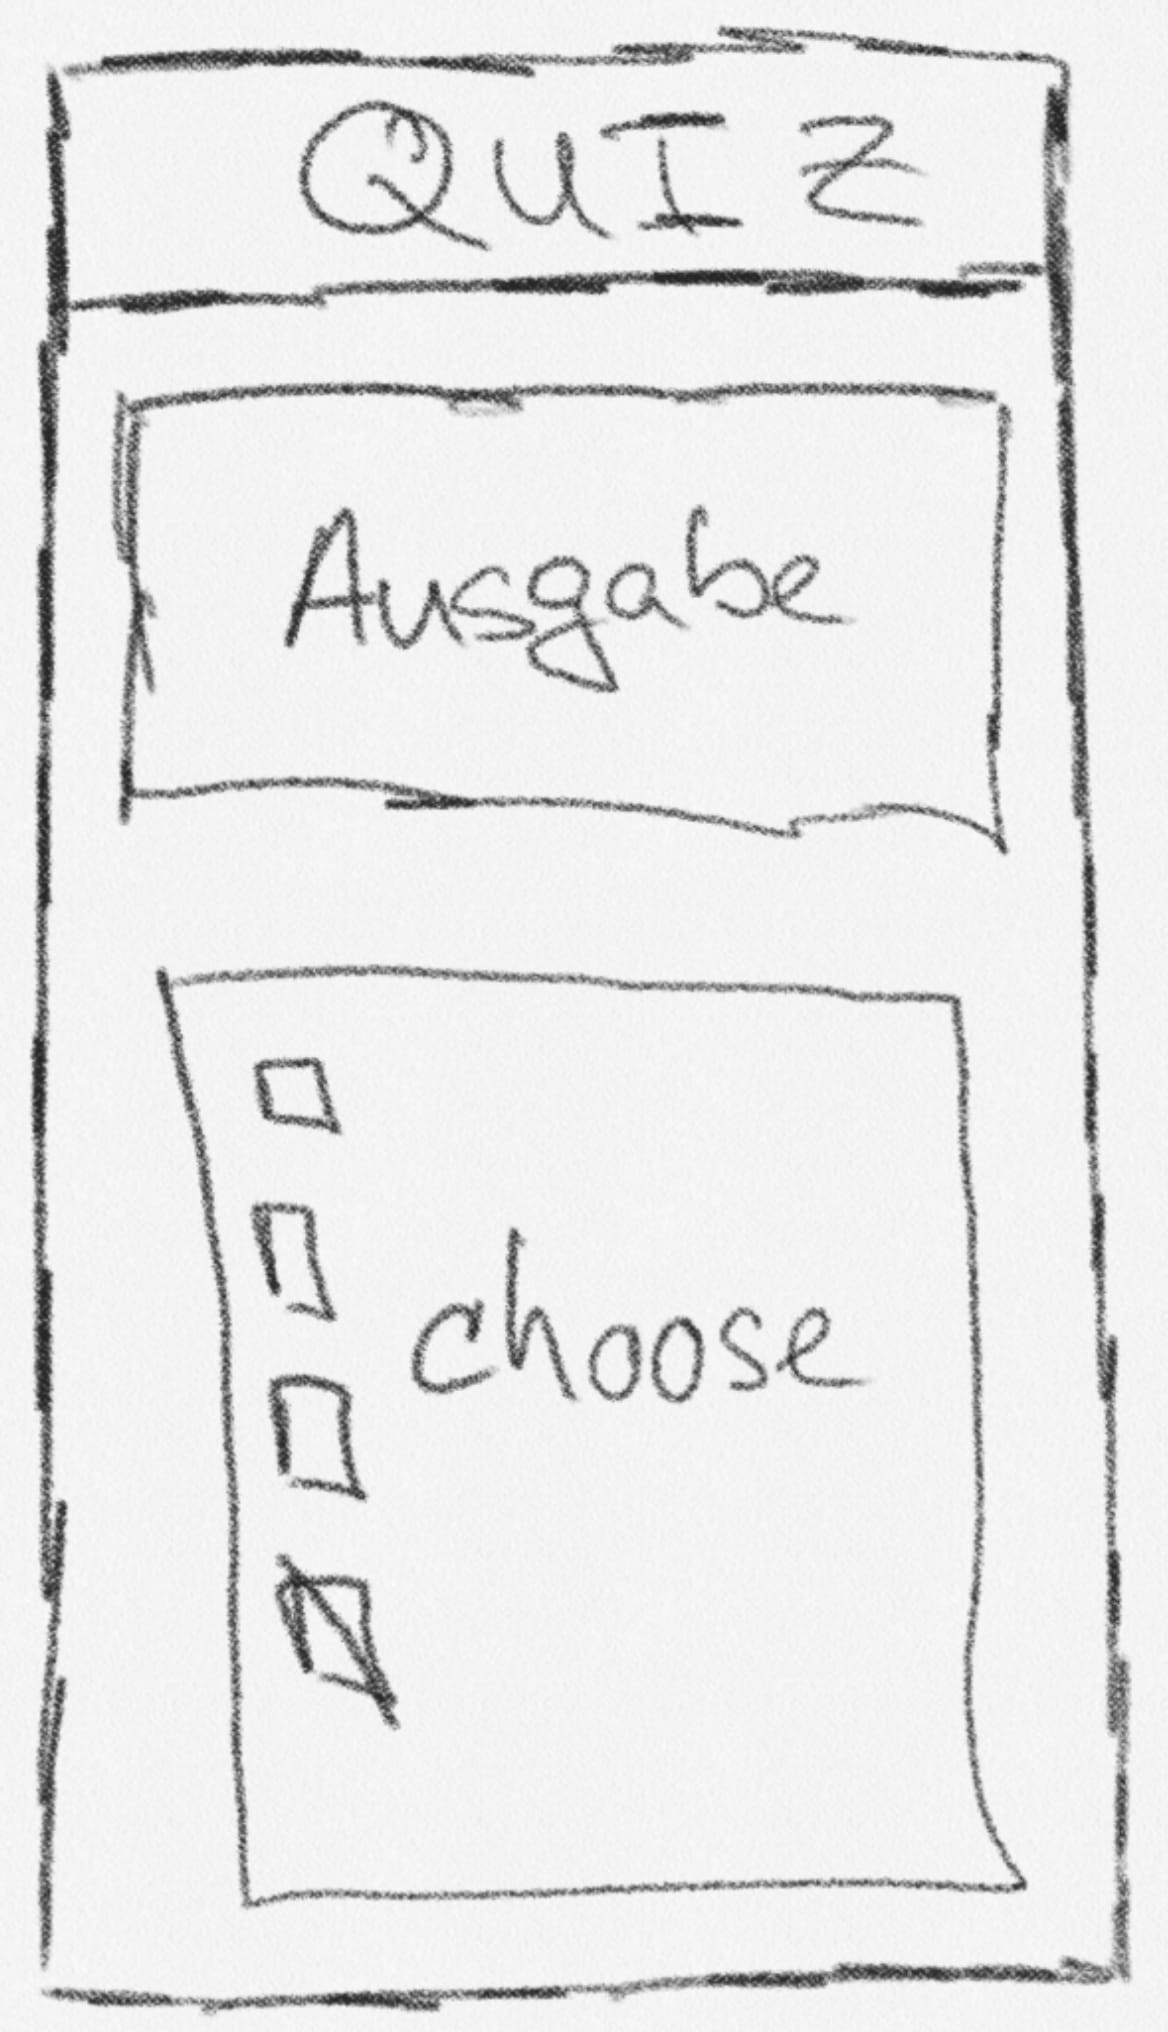 QUIZ
Ausgabe
choose